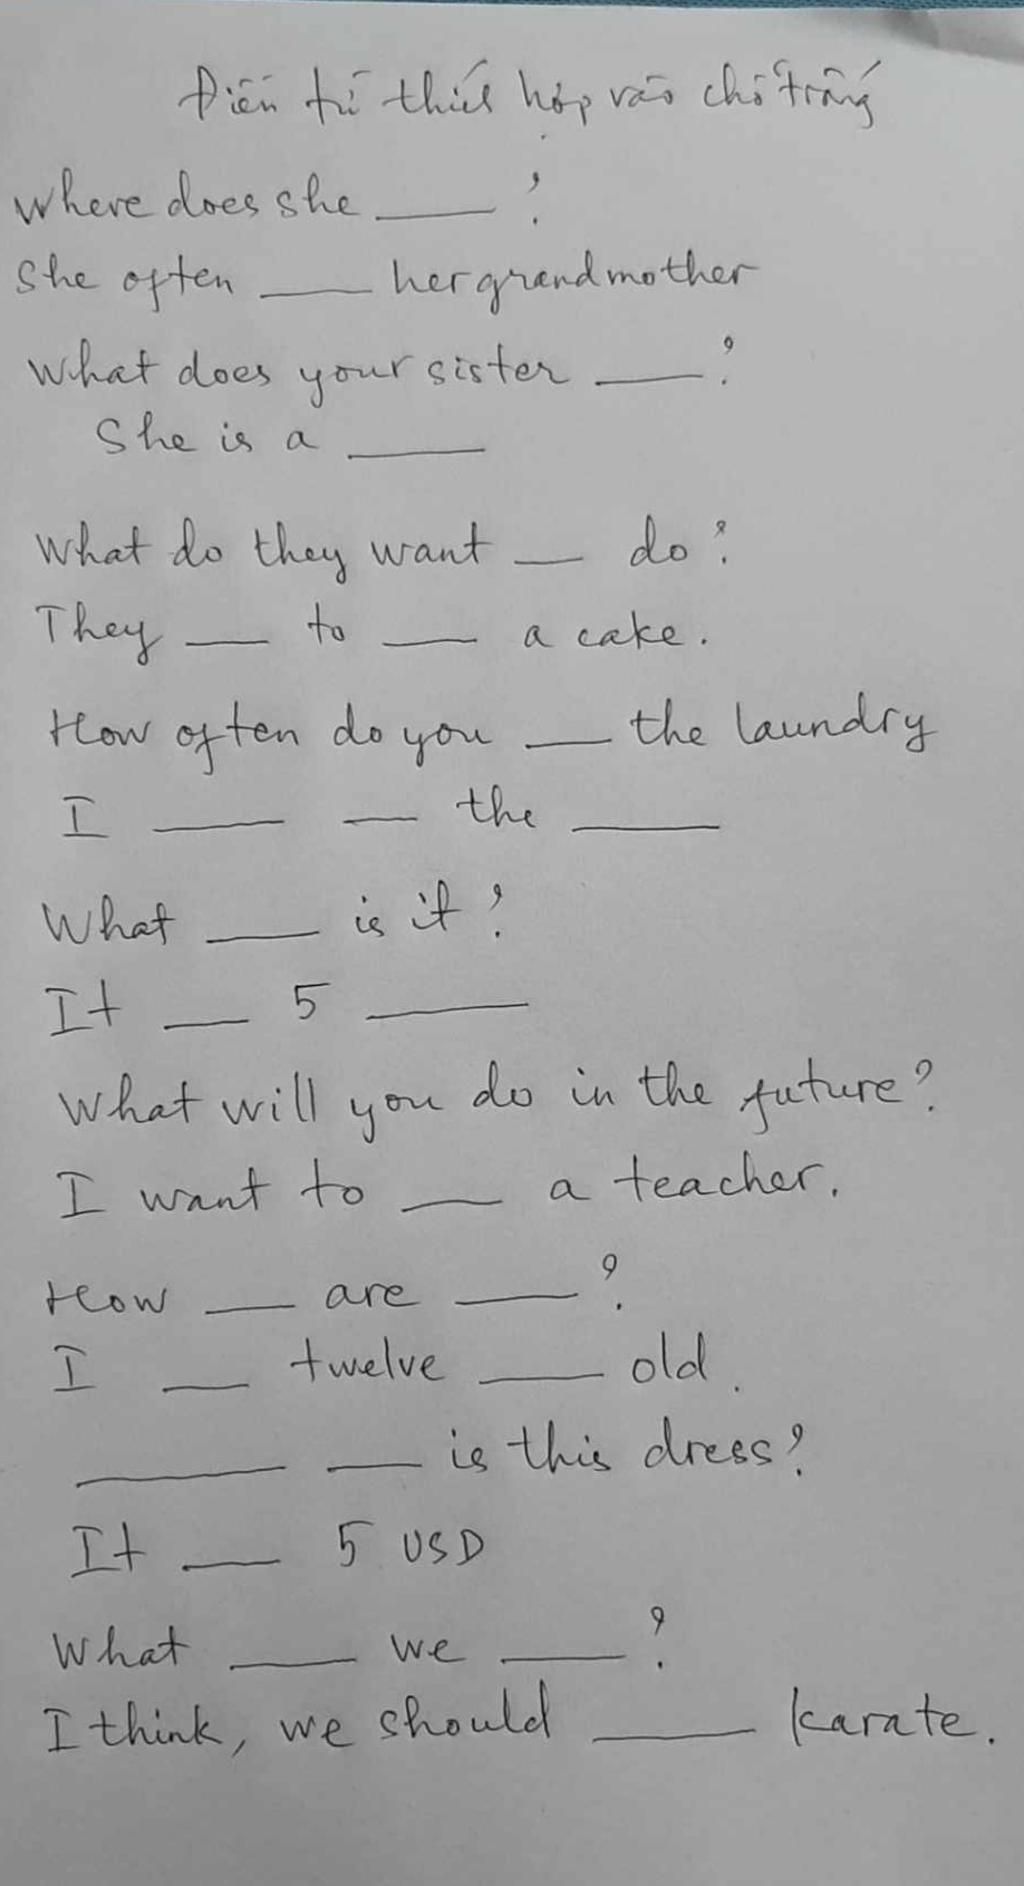 Điền từ thích hợp vào chỗ trống
Where does she ____ ?
She often ____ her grandmother
What does your sister ____ ?
She is a ____
What do they want __ do ?
They ___ to ___ a cake.
How often do you ___ the laundry
I ____ ___ the ____
What ____ is it ?
It ___ 5 ____
What will you do in the future?
I want to ___ a teacher.
How ___ are ____ ?
I ___ twelve ____ old.
______ ___ is this dress?
It ___ 5 USD
What ____ we ____ ?
I think, we should ____ karate.